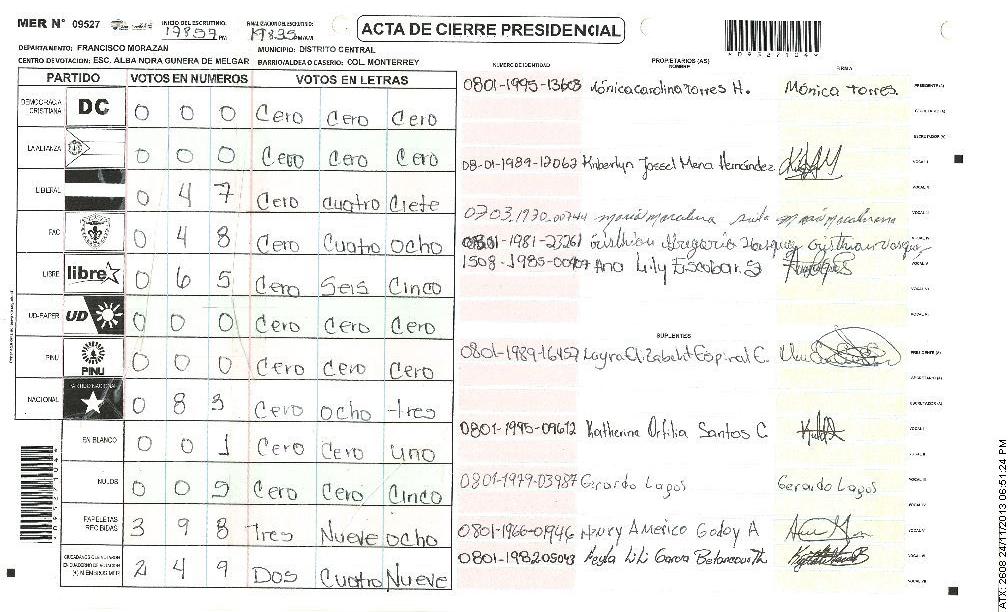 MER N° 09527
INICIO DEL ESCRUTINIO:
FINALIZACION DEL ESCRUTINIO:
ACTA DE CIERRE PRESIDENCIAL
DEPARTAMENTO: FRANCISCO MORAZAN MUNICIPIO: DISTRITO CENTRAL
CENTRO DE VOTACION: ESC. ALBA NORA GUNERA DE MELGAR BARRIO/ALDEA O CASERIO: COL. MONTERREY
PARTIDO VOTOS EN NUMEROS VOTOS EN LETRAS
DEMOCRACIA CRISTIANA DC 0 0 0 Cero Cero Cero
LA ALIANZA 0 0 0 Cero Cero Cero
LIBERAL 0 4 7 Cero cuatro Ciete
PAC 0 4 8 Cero Cuatro ocho
LIBRE libre 0 6 5 Cero Seis Cinco
UD-FAPER UD 0 0 0 Cero Cero Cero
PINU PINU 0 0 0 Cero Cero Cero
NACIONAL PARTIDO NACIONAL 0 8 3 Cero ocho tres
EN BLANCO 0 0 1 Cero Cero uno
NULOS 0 0 5 Cero Cero Cinco
PAPELETAS RECIBIDAS 3 9 8 Tres Nueve ocho
2 4 9 Dos Cuatro Nueve
NUMERO DE IDENTIDAD
PROPIETARIOS (AS)
NOMBRE
FIRMA
0801-1995-13603 Mónica Carolina Torres H. Mónica Torres. PRESIDENTE(A)
SECRETARIO(A)
ESCRUTADOR(A)
08-01-1989-12062 Kinberlyn Jossel Mena Hernández VOCAL I
VOCAL II
VOCAL III
-1981-23261 VOCAL IV
1508-1985- Ana Lily Escobar. S VOCAL V
VOCAL VI
VOCAL VII
SUPLENTES
0801-1989-16457 Espinal C. PRESIDENTE(A)
SECRETARIO(A)
ESCRUTADOR(A)
0801-1995-09612 Katherine Orfilia Santos C. VOCAL I
VOCAL II
0801-1979-03987 Gerardo Lagos Gerardo Lagos VOCAL III
VOCAL IV
0801-1966-01946 Americo Godoy A VOCAL V
0801-198205043 Keyla Lili VOCAL VI
VOCAL VII
ATX: 2608 24/11/2013 06:51:24 PM